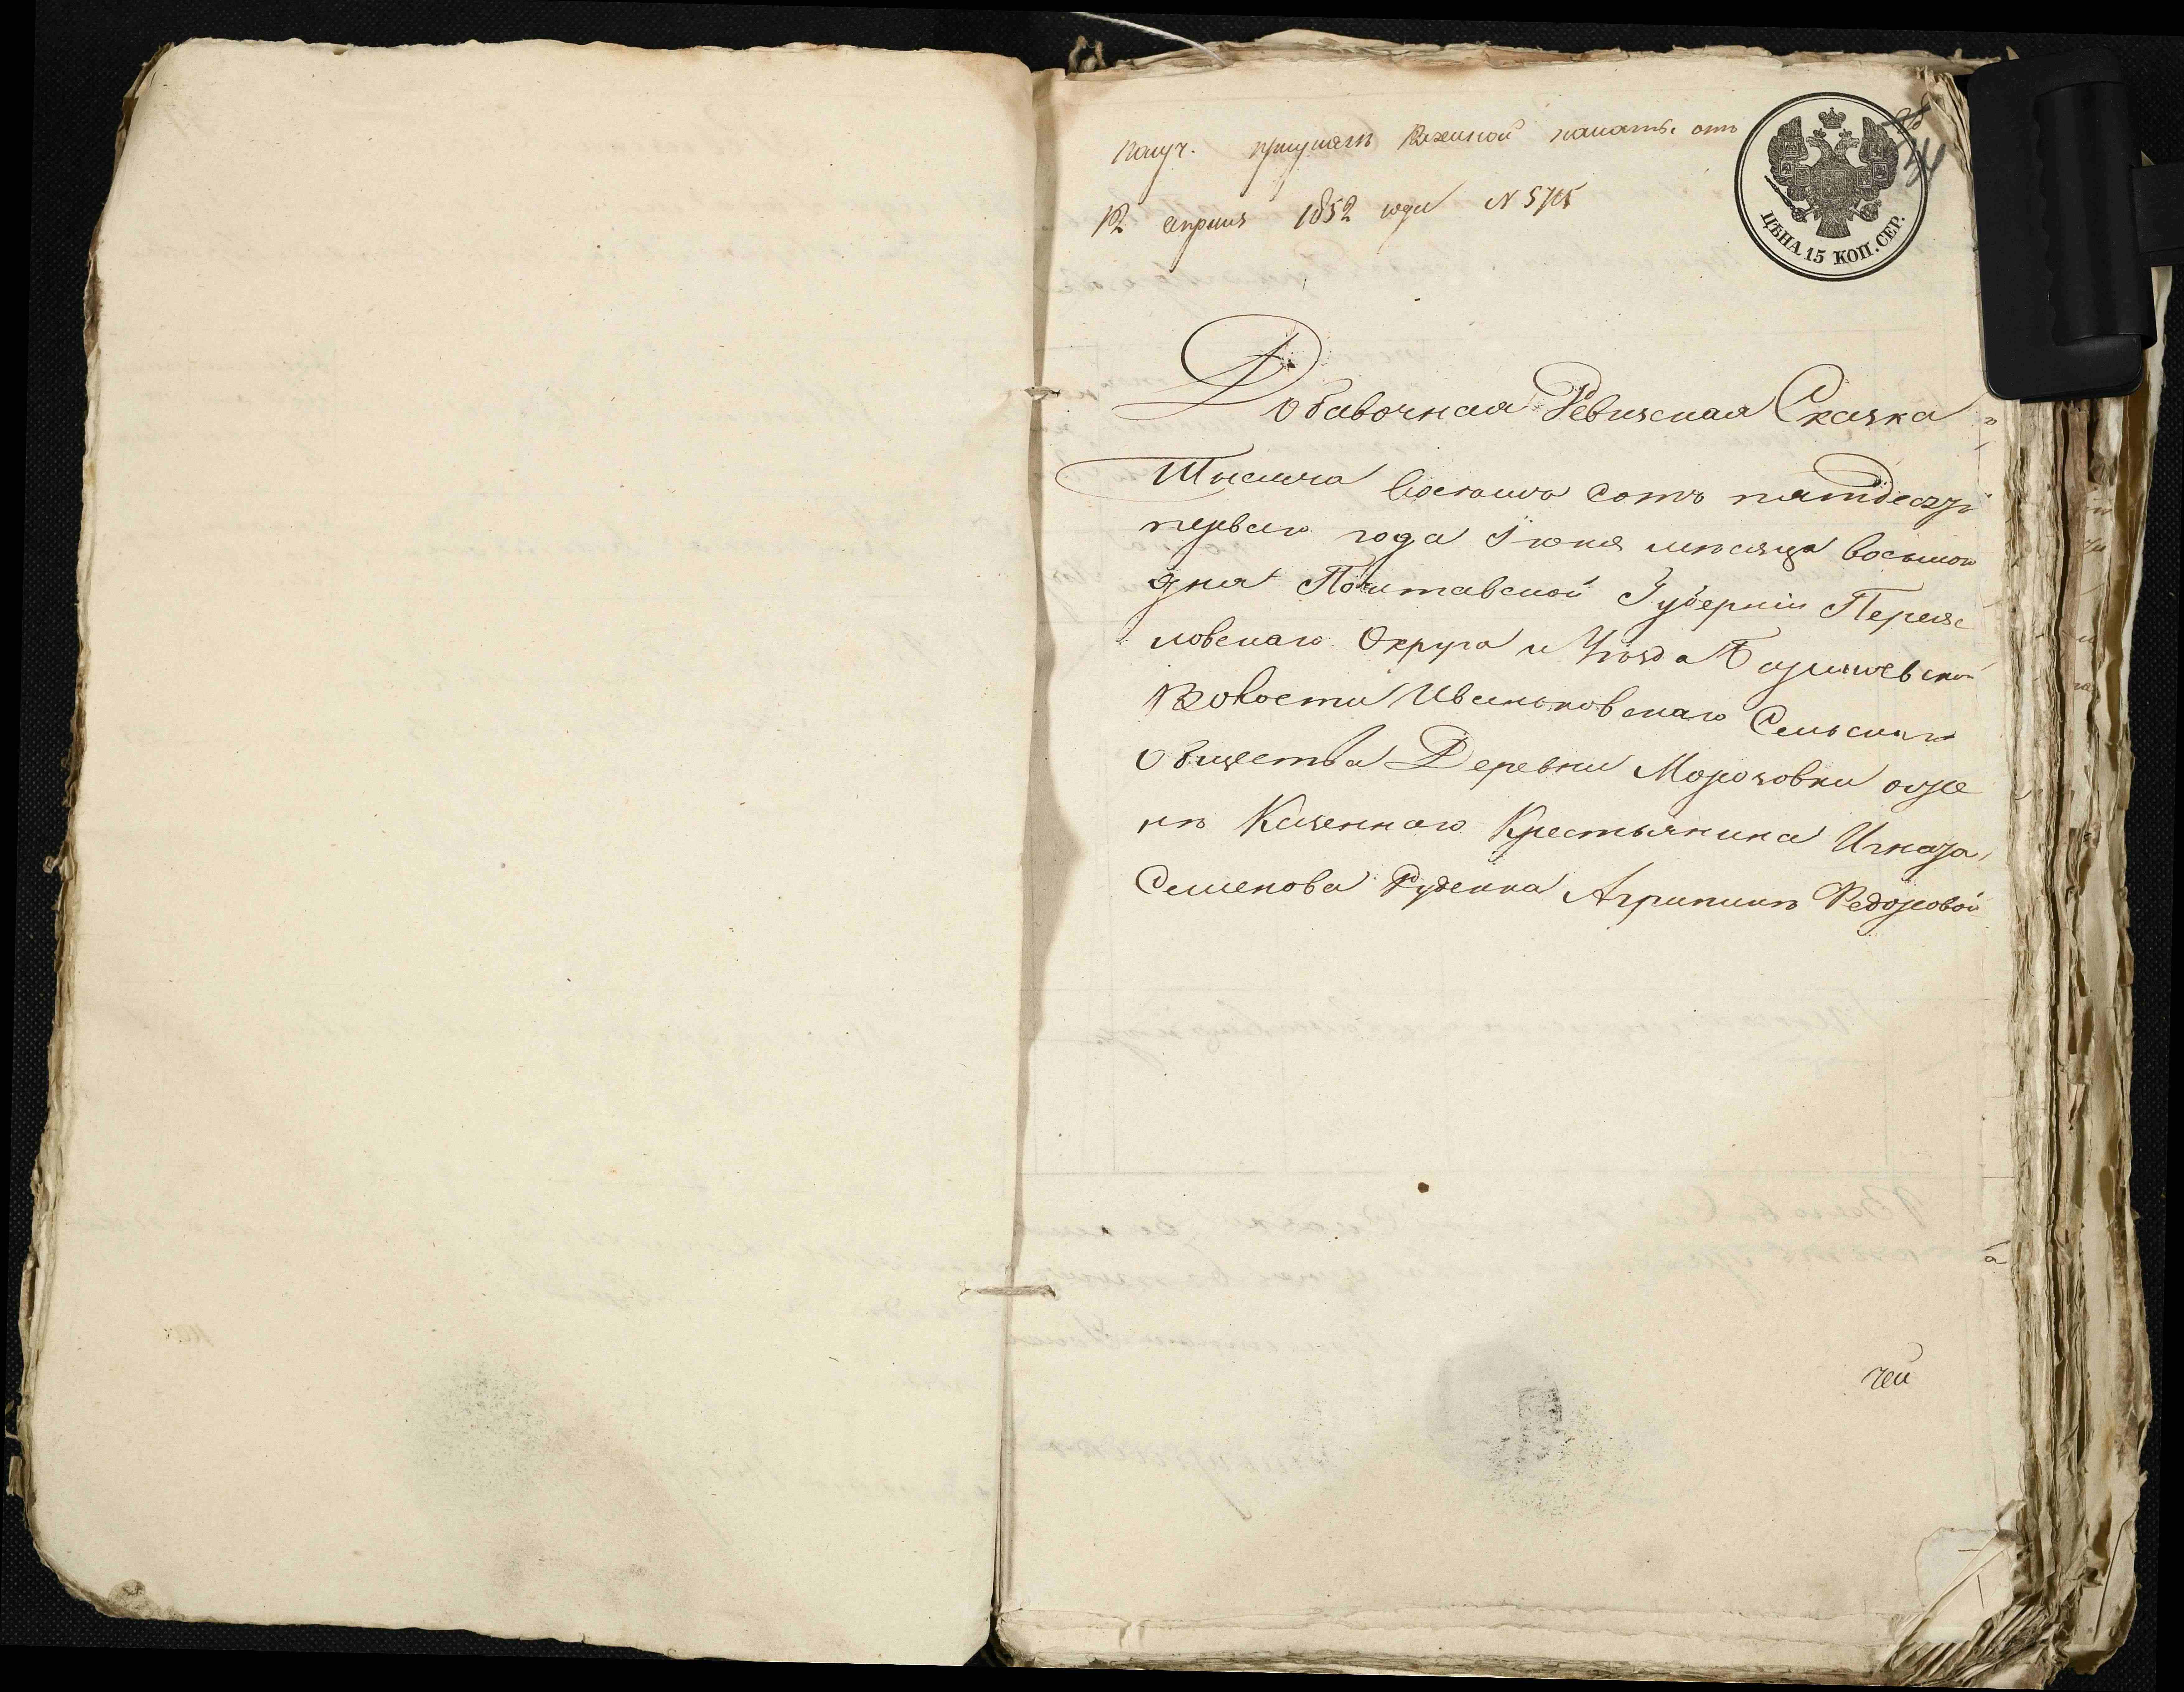 Казенной палаты отъ
12 апреля 1852 года N 5715
ЦѢНА 15 КОП. СЕР.
Добавочная Ревизская Сказка
Тысяча восемьсотъ пятдесятъ
первого года Іюня мѣсяца восьмого
дня Полтавской Губерніи Переяс
ловскаго Округа и Уѣзда
Волости Иваньковскаго Сельскаго
Общества Деревни Морозовки о же
нѣ Казеннаго Крестьянина Игната
Семенова Руденка Агрипинѣ Федоровой
чей